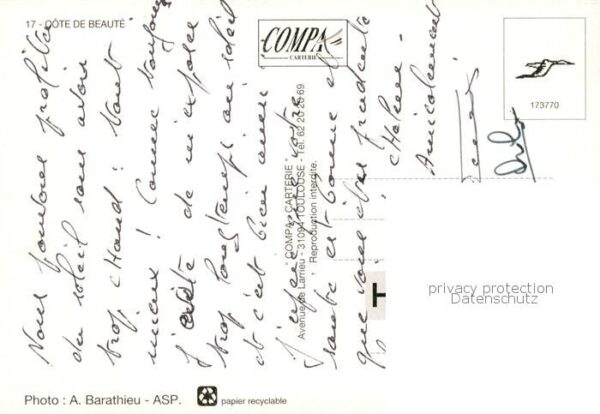 17 - CÔTE DE BEAUTÉ
COMPA
CARTERIE
173770
Nous pouvons profiter
du soleil sans avoir
trop chaud : tant
mieux ! Comme toujours
J'évite de m'exposer
trop longtemps au soleil
et c'est bien ainsi
J'espère que votre
santé est bonne et
que vous êtes prudente
Amicalement
" COMPA - CARTERIE "
Avenue de Larrieu - 31094 TOULOUSE - Tél. 62 20 20 69
Reproduction interdite.
T
privacy protection
Datenschutz
Photo : A. Barathieu - ASP.
papier recyclable